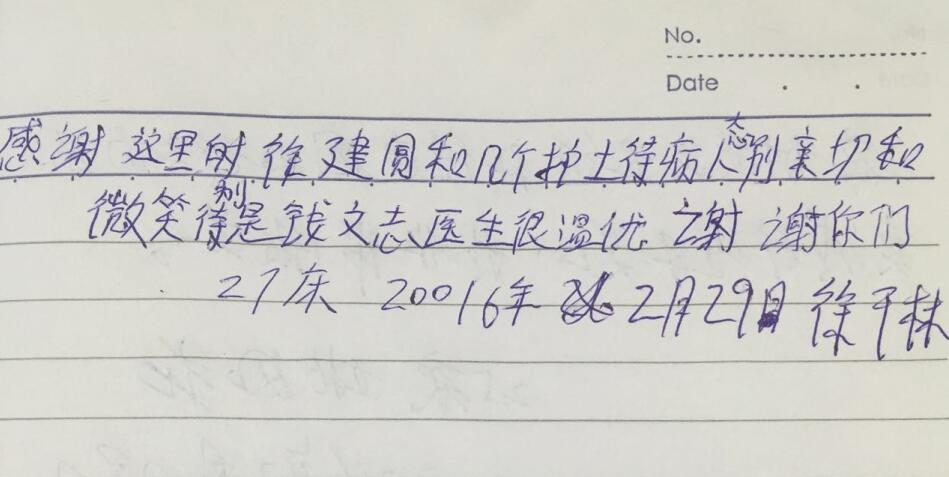 No.
Date
感谢 这里的徐建圆和几个护士待病人态别亲切和
微笑待别是钱文志医生很温优 谢谢你们
27床 20016年 2月29日 徐于林